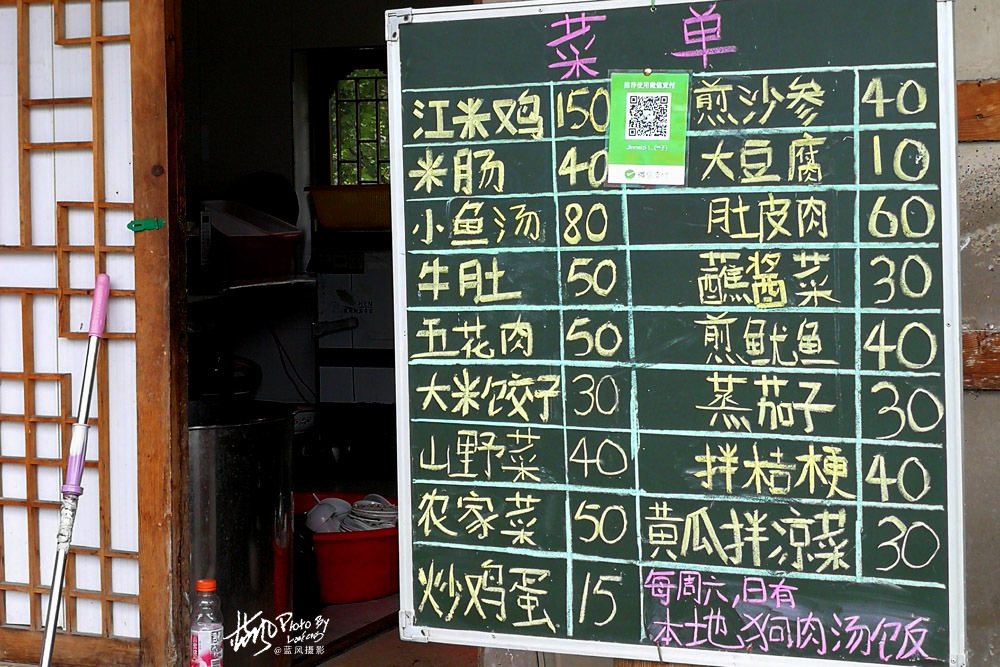 菜单
江米鸡 150 煎沙参 40
米肠 40 大豆腐 10
小鱼汤 80 肚皮肉 60
牛肚 50 蘸酱菜 30
五花肉 50 煎鱿鱼 40
大米饺子 30 蒸茄子 30
山野菜 40 拌桔梗 40
农家菜 50 黄瓜拌凉菜 30
炒鸡蛋 15 每周六,日有
本地狗肉汤饭
推荐使用微信支付
微信支付
Photo By
@蓝风摄影